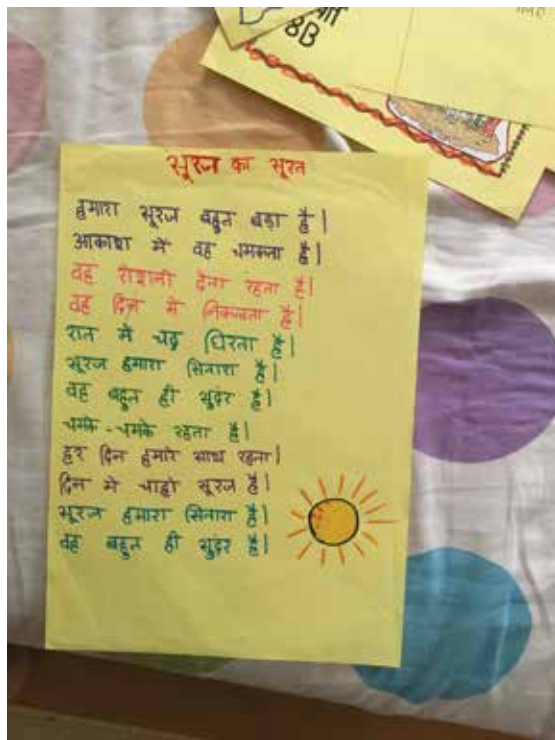 8B
सूरज का सूरत
हमारा सूरज बहुत बड़ा है।
आकाश में वह चमकता है।
वह रोशनी देता रहता है।
वह दिन में निकलता है।
रात में चंद्र घिरता है।
सूरज हमारा सितारा है।
वह बहुत ही सुंदर है।
चमके-चमके रहता है।
हर दिन हमारे साथ रहता।
दिन में चाहो सूरज है।
सूरज हमारा सितारा है।
वह बहुत ही सुंदर है।